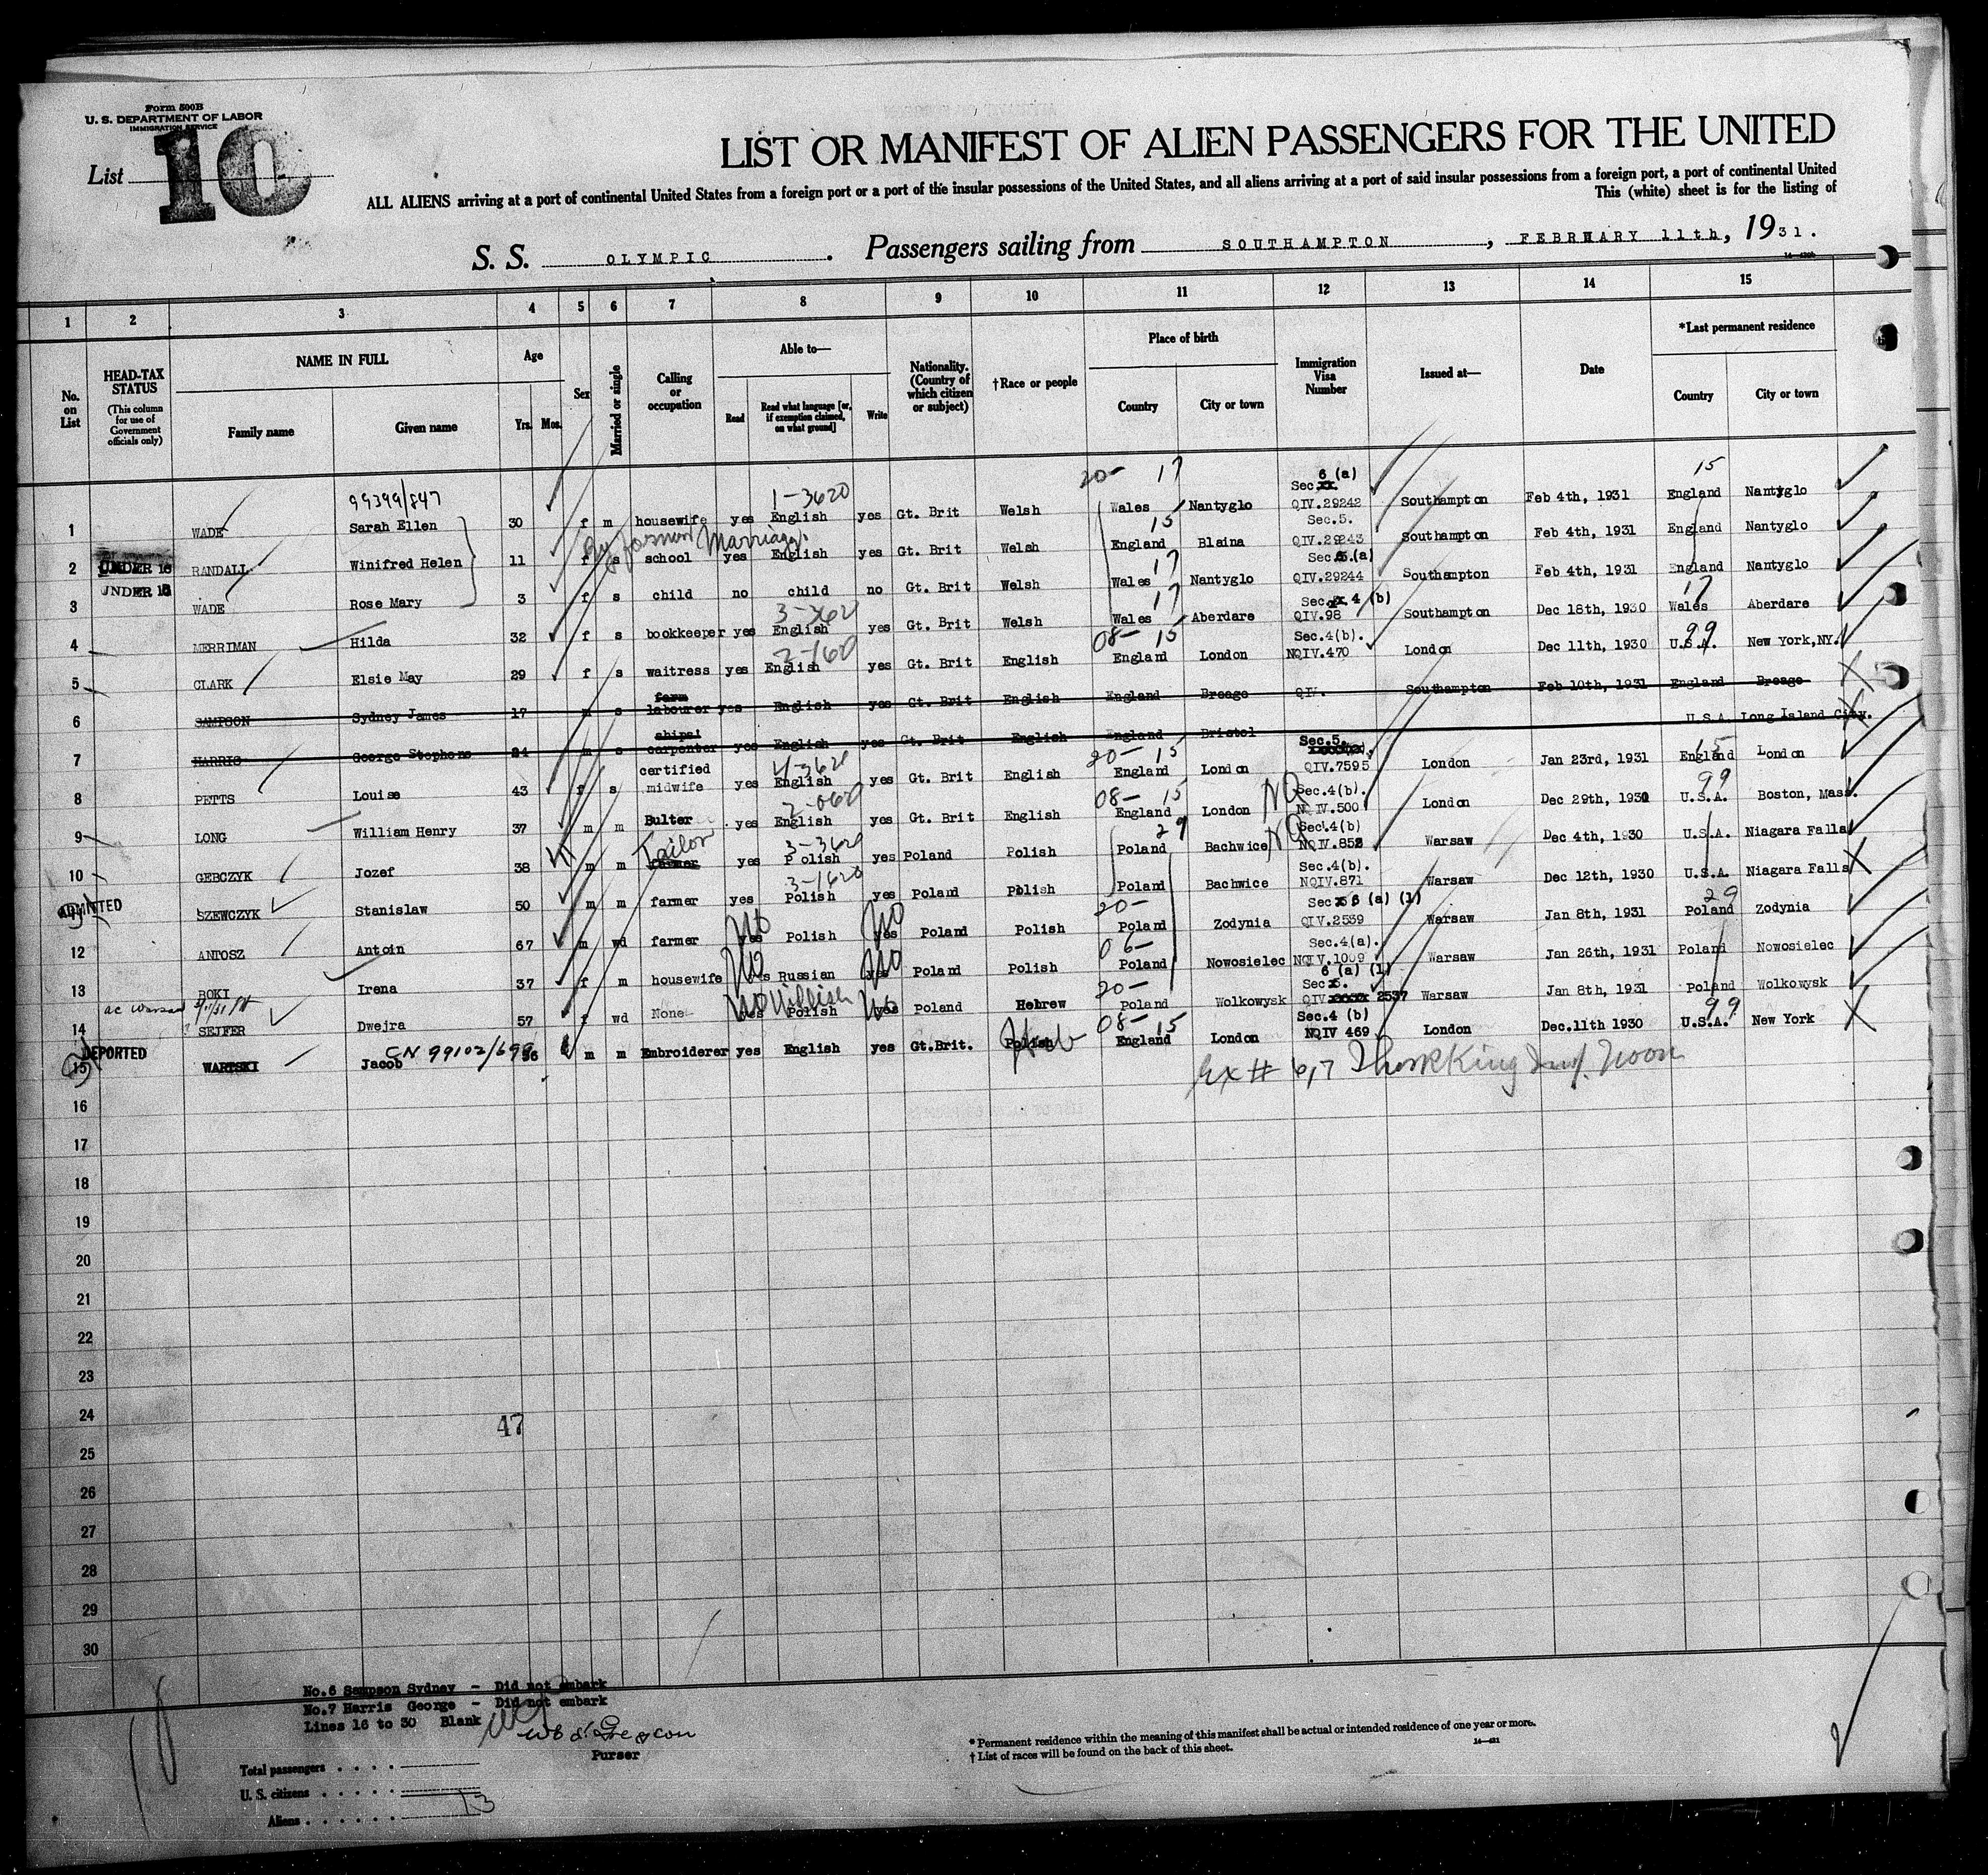 Form 500B
U. S. DEPARTMENT OF LABOR
IMMIGRATION SERVICE
List 10
LIST OR MANIFEST OF ALIEN PASSENGERS FOR THE UNITED
ALL ALIENS arriving at a port of continental United States from a foreign port or a port of the insular possessions of the United States, and all aliens arriving at a port of said insular possessions from a foreign port, a port of continental United
This (white) sheet is for the listing of
S. S. OLYMPIC. Passengers sailing from SOUTHAMPTON, FEBRUARY 11th, 1931.
1 2 3 4 5 6 7 8 9 10 11 12 13 14 15
No. on List
HEAD-TAX STATUS (This column for use of Government officials only)
NAME IN FULL
Family name
Given name
Age
Yrs. Mos.
Sex
Married or single
Calling or occupation
Able to—
Read
Read what language [or, if exemption claimed, on what ground]
Write
Nationality. (Country of which citizen or subject)
†Race or people
Place of birth
Country
City or town
Immigration Visa Number
Issued at—
Date
*Last permanent residence
Country
City or town
99399/847 1-3620 20- 17 Sec. 6 (a) 15
1 WADE Sarah Ellen 30 f m housewife yes English yes Gt. Brit Welsh Wales Nantyglo QIV.29242 Southampton Feb 4th, 1931 England Nantyglo
By former Marriage. 15 Sec.5.
2 UNDER 16 RANDALL Winifred Helen 11 f s school yes English yes Gt. Brit Welsh England Blaina QIV.29243 Southampton Feb 4th, 1931 England Nantyglo
17 Sec.6.(a)
3 UNDER 16 WADE Rose Mary 3 f s child no child no Gt. Brit Welsh Wales Nantyglo QIV.29244 Southampton Feb 4th, 1931 England Nantyglo
3-3620 17 Sec. 4 (b) 17
4 MERRIMAN Hilda 32 f s bookkeeper yes English yes Gt. Brit Welsh Wales Aberdare QIV.98 Southampton Dec 18th, 1930 Wales Aberdare
2-1620 08- 15 Sec.4(b). 99
5 CLARK Elsie May 29 f s waitress yes English yes Gt. Brit English England London NQIV.470 London Dec 11th, 1930 U.S.A. New York,NY.
6 SAMPSON Sydney James 17 m s farm labourer yes English yes Gt. Brit English England Breage QIV. Southampton Feb 10th, 1931 England Breage
7 HARRIS George Stephens 24 m s ships' carpenter yes English yes Gt. Brit English England Bristol U.S.A. Long Island City.
4-3620 20- 15 Sec.5. 15
8 PETTS Louise 43 f s certified midwife yes English yes Gt. Brit English England London QIV.7595 London Jan 23rd, 1931 England London
2-0620 08- 15 NQ Sec.4(b). 99
9 LONG William Henry 37 m m Bulter yes English yes Gt. Brit English England London NQIV.500 London Dec 29th, 1930 U.S.A. Boston, Mass.
Tailor 3-3620 29 NQ Sec.4(b)
10 GEBCZYK Jozef 38 m m farmer yes Polish yes Poland Polish Poland Bachwice NQIV.852 Warsaw Dec 4th, 1930 U.S.A. Niagara Falls
3-1620 Sec.4(b).
11 ADMITTED SZEWCZYK Stanislaw 50 m m farmer yes Polish yes Poland Polish Poland Bachwice NQIV.871 Warsaw Dec 12th, 1930 U.S.A. Niagara Falls
No No 20- Sec 6 (a) (1) 29
12 ANTOSZ Antoin 67 m wd farmer yes Polish yes Poland Polish Poland Zodynia QIV.2539 Warsaw Jan 8th, 1931 Poland Zodynia
No No 06- Sec.4(a).
13 BOKI Irena 37 f m housewife yes Russian yes Poland Polish Poland Nowosielec NQIV.1009 Warsaw Jan 26th, 1931 Poland Nowosielec
ac Warsaw No Yiddish No 20- 6 (a) (1) Sec
14 SEJFER Dwejra 57 f wd None yes Polish yes Poland Hebrew Poland Wolkowysk QIV 2537 Warsaw Jan 8th, 1931 Poland Wolkowysk
CN 99102/699 Heb 08- 15 Sec.4 (b) 99
15 DEPORTED WARTSKI Jacob 36 m m Embroiderer yes English yes Gt.Brit. Polish England London NQIV 469 London Dec.11th 1930 U.S.A. New York
Ex # 6,7
16
17
18
19
20
21
22
23
24
47
25
26
27
28
29
30
No.6 Sampson Sydney - Did not embark
No.7 Harris George - Did not embark
Lines 16 to 30 Blank
Purser
Total passengers
U. S. citizens
Aliens 13
* Permanent residence within the meaning of this manifest shall be actual or intended residence of one year or more.
† List of races will be found on the back of this sheet.
14—421